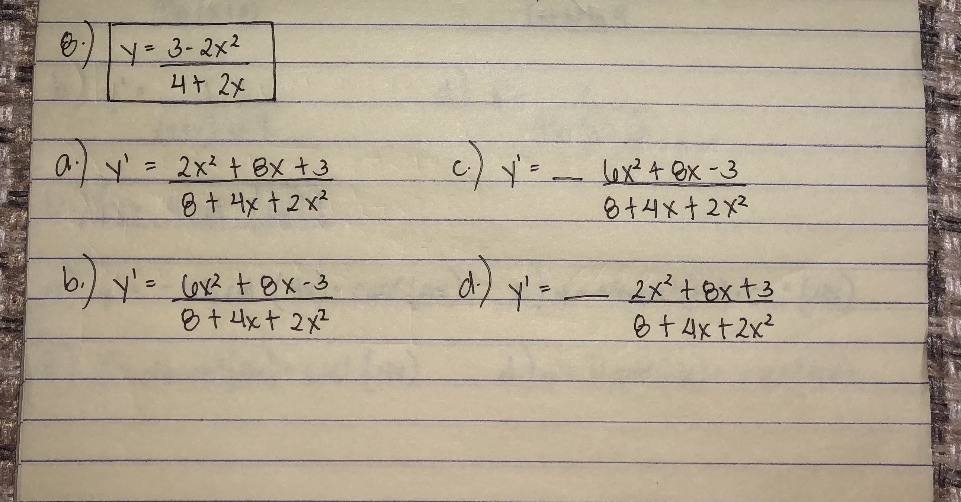 8.) y = 3 - 2x²
4 + 2x
a.) y' = 2x² + 8x + 3
8 + 4x + 2x²
c.) y' = — 6x² + 8x - 3
8 + 4x + 2x²
b.) y' = 6x² + 8x - 3
8 + 4x + 2x²
d.) y' = — 2x² + 8x + 3
8 + 4x + 2x²